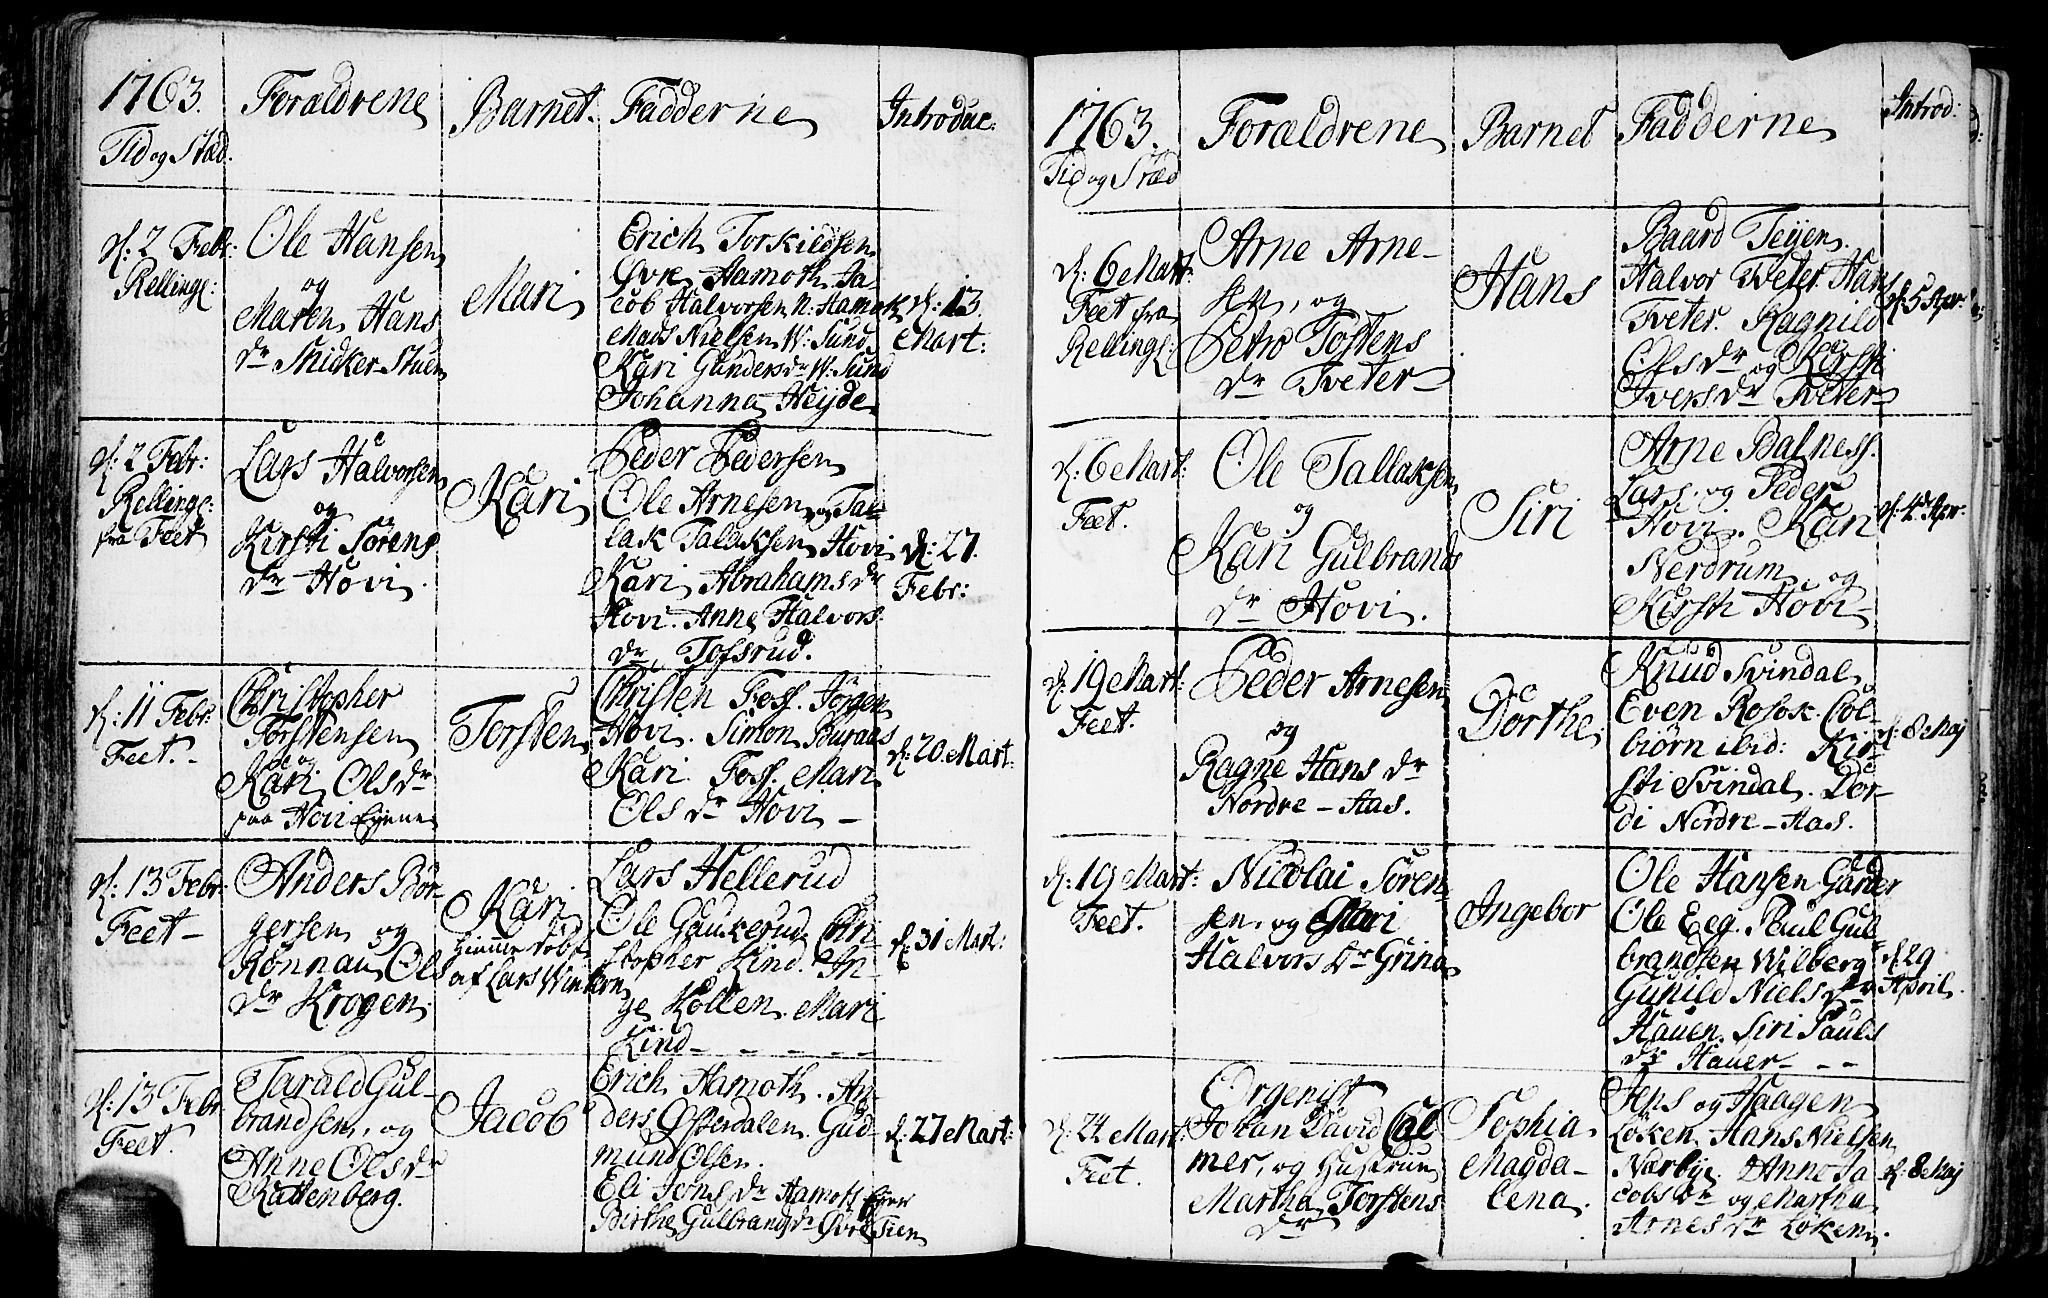 1763.
Tid og Stæd.
Forældrene
Barnet.
Fadderne
Introduc:
d: 2 Febr:
Rellingl:
Ole Hansen
og
Maren Hans
dr Snicker-Stuen
Mari
Erich Torkildsen
Øvre Hamoth Ja-
cob Halvorsen N: Hamoth
Mads Nielsen W: Sund
Kari Gundersdr W: Sund
Johanna Heyde
d: 13.
Mart:
d: 2 Febr:
Rellingl:
fra Feet
Lars Halvorsen
og
Kirsti Sörens
dr Hovi.
Kari
Peder Pedersen
Ole Arnesen og Tal-
lak Talaksen Hovi
Kari Abrahamsdr
Hovi. Anne Halvors
dr Tofsrud.
d: 27.
Febr:
d: 11 Febr:
Feet.
Christopher
Torstensen
og
Kari Olsdr
paa Hovi Eyene
Torsten
Christen Foss. Jörgen
Hovi. Simon Buraas
Kari Foss. Mari
Ols dr Hovi
d: 20 Mart:
d: 13 Febr:
Feet
Anders Bör-
gersen og
Rönnau Ols
dr Krogen.
Kari
Hjemme döbt
af Lars Winkern
Lars Hellerud
Ole Gaukerud Chri-
stopher Lind. In-
ge Kollen. Mari
Lind
d: 31 Mart:
d: 13 Febr.
Feet.
Tarald Gul-
brandsen, og
Anne Olsdr
Kattenberg.
Jacob
Erich Hamoth. An-
ders Østerdalen. Gud-
mund Olsen.
Eli Jons dr Hamoth Eyer
Birthe Gulbrandsdr Øvre Sien
d: 27 Mart:
1763.
Tid og Stæd
Forældrene
Barnet
Fadderne
Introd:
d: 6 Mart:
Feet fra
Rellingl:
Arne Arne-
sen, og
Petro Tostens
dr Tveter
Hans
Baard Teyen.
Halvor Tveter. Hans
Tveter. Ragnild
Olsdr og Kirsti
Iversdr Tveter
d: 5 Apr:
d: 6 Mart:
Feet.
Ole Tallaksen
og
Kari Gulbrands
dr Hovi.
Siri
Arne Balness.
Lars og Peder
Hovi. Kari
Nerdrum og
Kirsti Hovi
d: 4 Apr:
d: 19 Mart:
Feet.
Peder Arnesen
og
Ragne Hans dr
Nordre-Aas.
Dorthe
Knud Svindal
Even Rosok. Col-
biørn ibid: Kir-
sti Svindal. Dor-
di Nordre-Aas.
d: 8 Maj
d: 19 Mart:
Feet.
Nicolai Sören-
sen, og Mari
Halvors dr Grina
Ingebor
Ole Hansen Garder
Ole Eeg. Paul Gul-
brandsen Wilberg
Gunild Niels dr
Hauen. Siri Pauls
dr Hauer
d: 29
April.
d: 24 Mart:
Feet.
Orgenist
Johan David Cal
mer, og Hustrue
Martha Torstens
dr
Sophia
Magda-
lena.
Jens og Haagen
Löken. Hans Nielsen
Narbye. Anne Ja
cobs dr og Martha
Arnes dr Löken.
d: 8 Maj